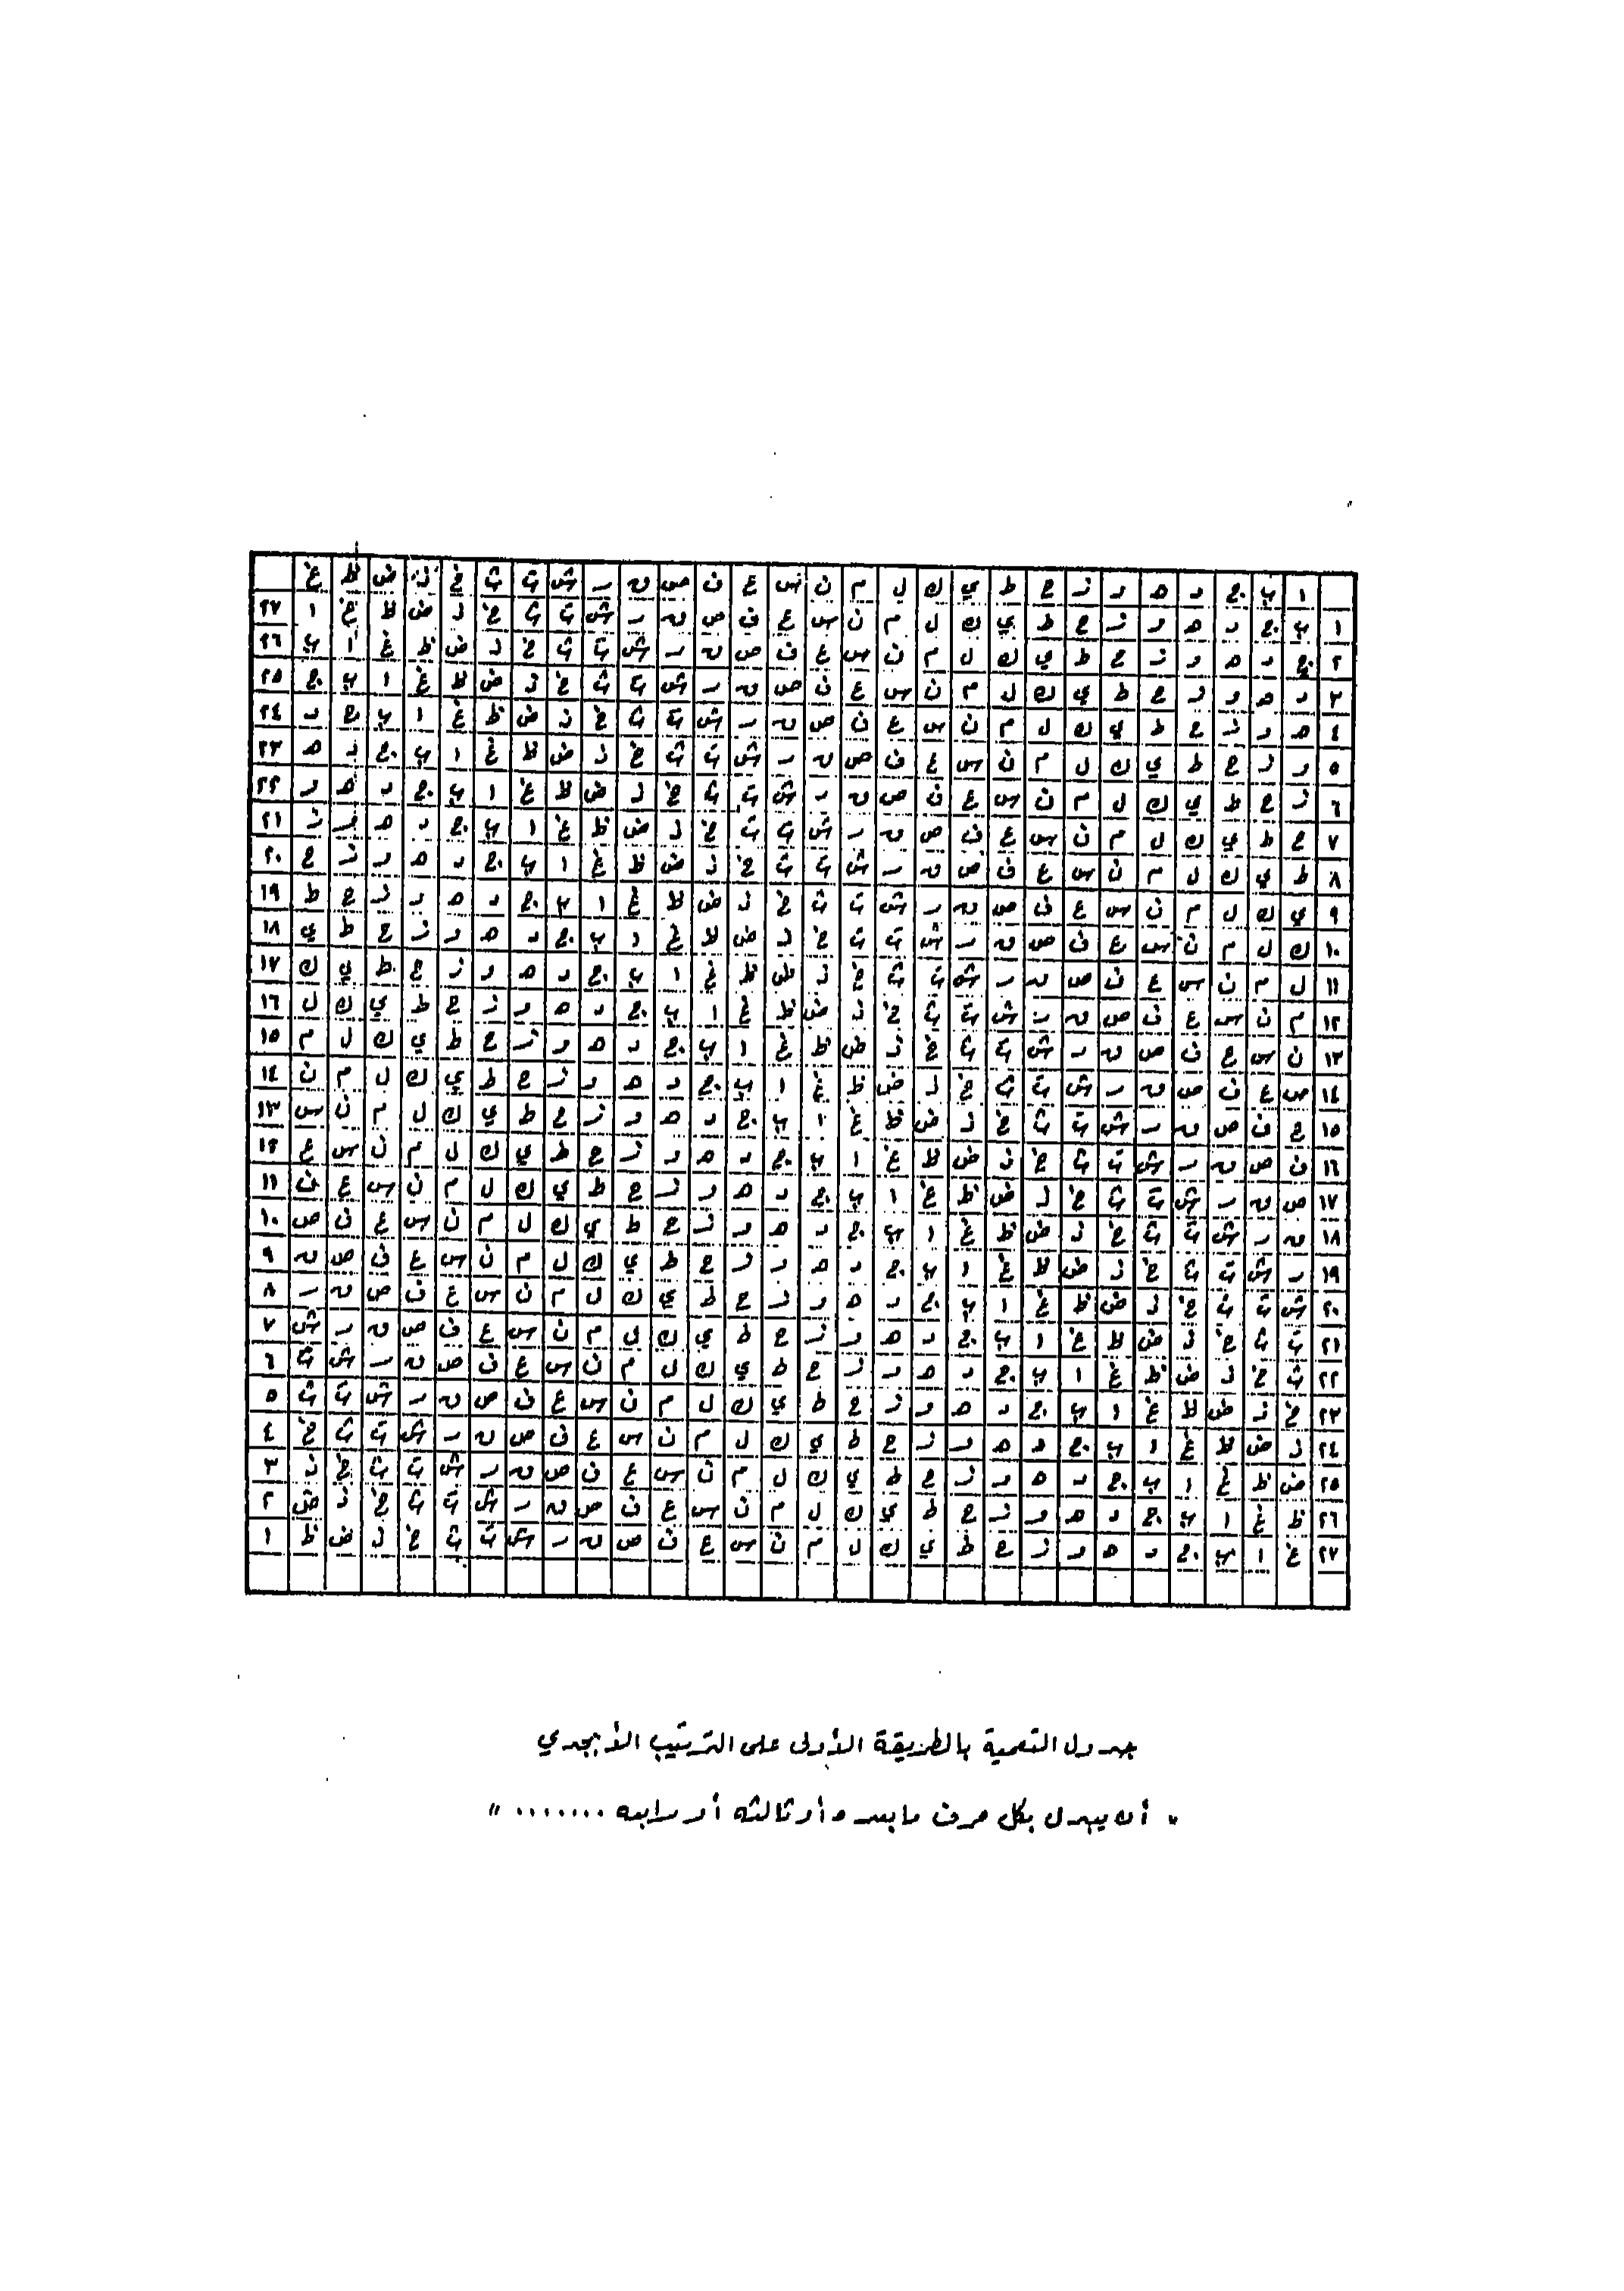 ا ب ج د ه و ز ح ط ي ك ل م ن س ع ف ص ق ر ش ت ث خ ذ ض ظ غ
١ ب ج د ه و ز ح ط ي ك ل م ن س ع ف ص ق ر ش ت ث خ ذ ض ظ غ ا ٢٧
٢ ج د ه و ز ح ط ي ك ل م ن س ع ف ص ق ر ش ت ث خ ذ ض ظ غ ا ب ٢٦
٣ د ه و ز ح ط ي ك ل م ن س ع ف ص ق ر ش ت ث خ ذ ض ظ غ ا ب ج ٢٥
٤ ه و ز ح ط ي ك ل م ن س ع ف ص ق ر ش ت ث خ ذ ض ظ غ ا ب ج د ٢٤
٥ و ز ح ط ي ك ل م ن س ع ف ص ق ر ش ت ث خ ذ ض ظ غ ا ب ج د ه ٢٣
٦ ز ح ط ي ك ل م ن س ع ف ص ق ر ش ت ث خ ذ ض ظ غ ا ب ج د ه و ٢٢
٧ ح ط ي ك ل م ن س ع ف ص ق ر ش ت ث خ ذ ض ظ غ ا ب ج د ه و ز ٢١
٨ ط ي ك ل م ن س ع ف ص ق ر ش ت ث خ ذ ض ظ غ ا ب ج د ه و ز ح ٢٠
٩ ي ك ل م ن س ع ف ص ق ر ش ت ث خ ذ ض ظ غ ا ب ج د ه و ز ح ط ١٩
١٠ ك ل م ن س ع ف ص ق ر ش ت ث خ ذ ض ظ غ ا ب ج د ه و ز ح ط ي ١٨
١١ ل م ن س ع ف ص ق ر ش ت ث خ ذ ض ظ غ ا ب ج د ه و ز ح ط ي ك ١٧
١٢ م ن س ع ف ص ق ر ش ت ث خ ذ ض ظ غ ا ب ج د ه و ز ح ط ي ك ل ١٦
١٣ ن س ع ف ص ق ر ش ت ث خ ذ ض ظ غ ا ب ج د ه و ز ح ط ي ك ل م ١٥
١٤ س ع ف ص ق ر ش ت ث خ ذ ض ظ غ ا ب ج د ه و ز ح ط ي ك ل م ن ١٤
١٥ ع ف ص ق ر ش ت ث خ ذ ض ظ غ ا ب ج د ه و ز ح ط ي ك ل م ن س ١٣
١٦ ف ص ق ر ش ت ث خ ذ ض ظ غ ا ب ج د ه و ز ح ط ي ك ل م ن س ع ١٢
١٧ ص ق ر ش ت ث خ ذ ض ظ غ ا ب ج د ه و ز ح ط ي ك ل م ن س ع ف ١١
١٨ ق ر ش ت ث خ ذ ض ظ غ ا ب ج د ه و ز ح ط ي ك ل م ن س ع ف ص ١٠
١٩ ر ش ت ث خ ذ ض ظ غ ا ب ج د ه و ز ح ط ي ك ل م ن س ع ف ص ق ٩
٢٠ ش ت ث خ ذ ض ظ غ ا ب ج د ه و ز ح ط ي ك ل م ن س ع ف ص ق ر ٨
٢١ ت ث خ ذ ض ظ غ ا ب ج د ه و ز ح ط ي ك ل م ن س ع ف ص ق ر ش ٧
٢٢ ث خ ذ ض ظ غ ا ب ج د ه و ز ح ط ي ك ل م ن س ع ف ص ق ر ش ت ٦
٢٣ خ ذ ض ظ غ ا ب ج د ه و ز ح ط ي ك ل م ن س ع ف ص ق ر ش ت ث ٥
٢٤ ذ ض ظ غ ا ب ج د ه و ز ح ط ي ك ل م ن س ع ف ص ق ر ش ت ث خ ٤
٢٥ ض ظ غ ا ب ج د ه و ز ح ط ي ك ل م ن س ع ف ص ق ر ش ت ث خ ذ ٣
٢٦ ظ غ ا ب ج د ه و ز ح ط ي ك ل م ن س ع ف ص ق ر ش ت ث خ ذ ض ٢
٢٧ غ ا ب ج د ه و ز ح ط ي ك ل م ن س ع ف ص ق ر ش ت ث خ ذ ض ظ ١
جدول التعمية بالطريقة الأولى على الترتيب الأبجدي
" أن يبدل بكل حرف ما بعده أو ثالثه أو رابعه ....... "